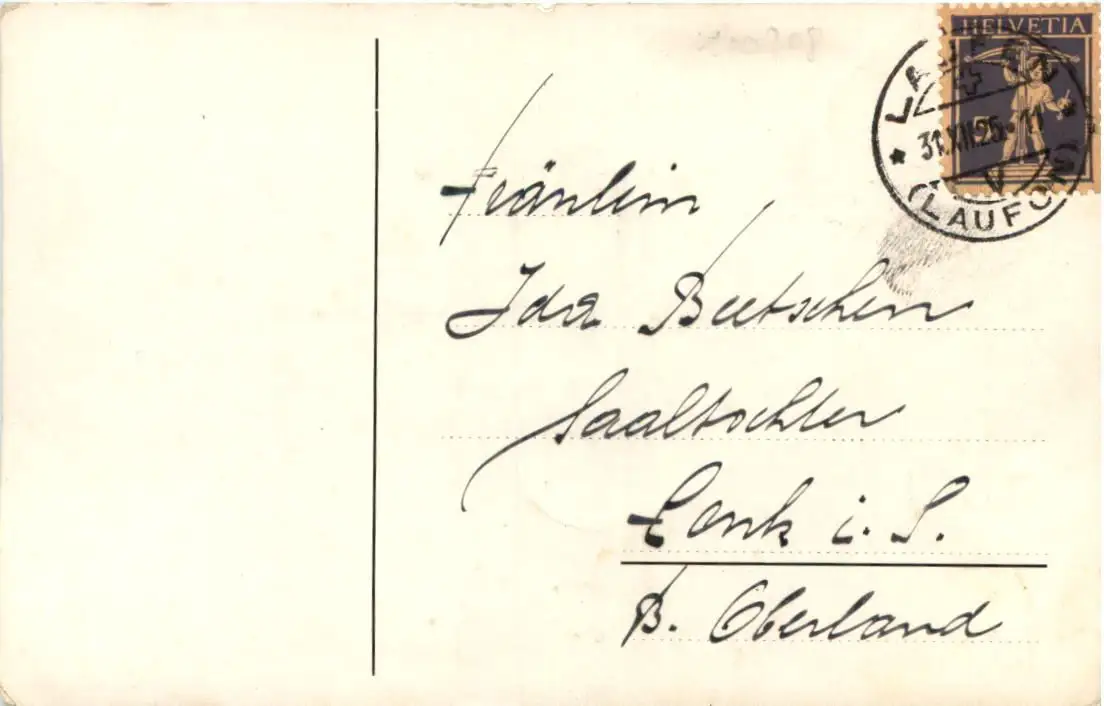 HELVETIA
LAUFEN
31.XII.25.-11
V
(LAUFON)
Fräulein
Ida Beetschen
Saaltochter
Lenk i. S.
B. Oberland